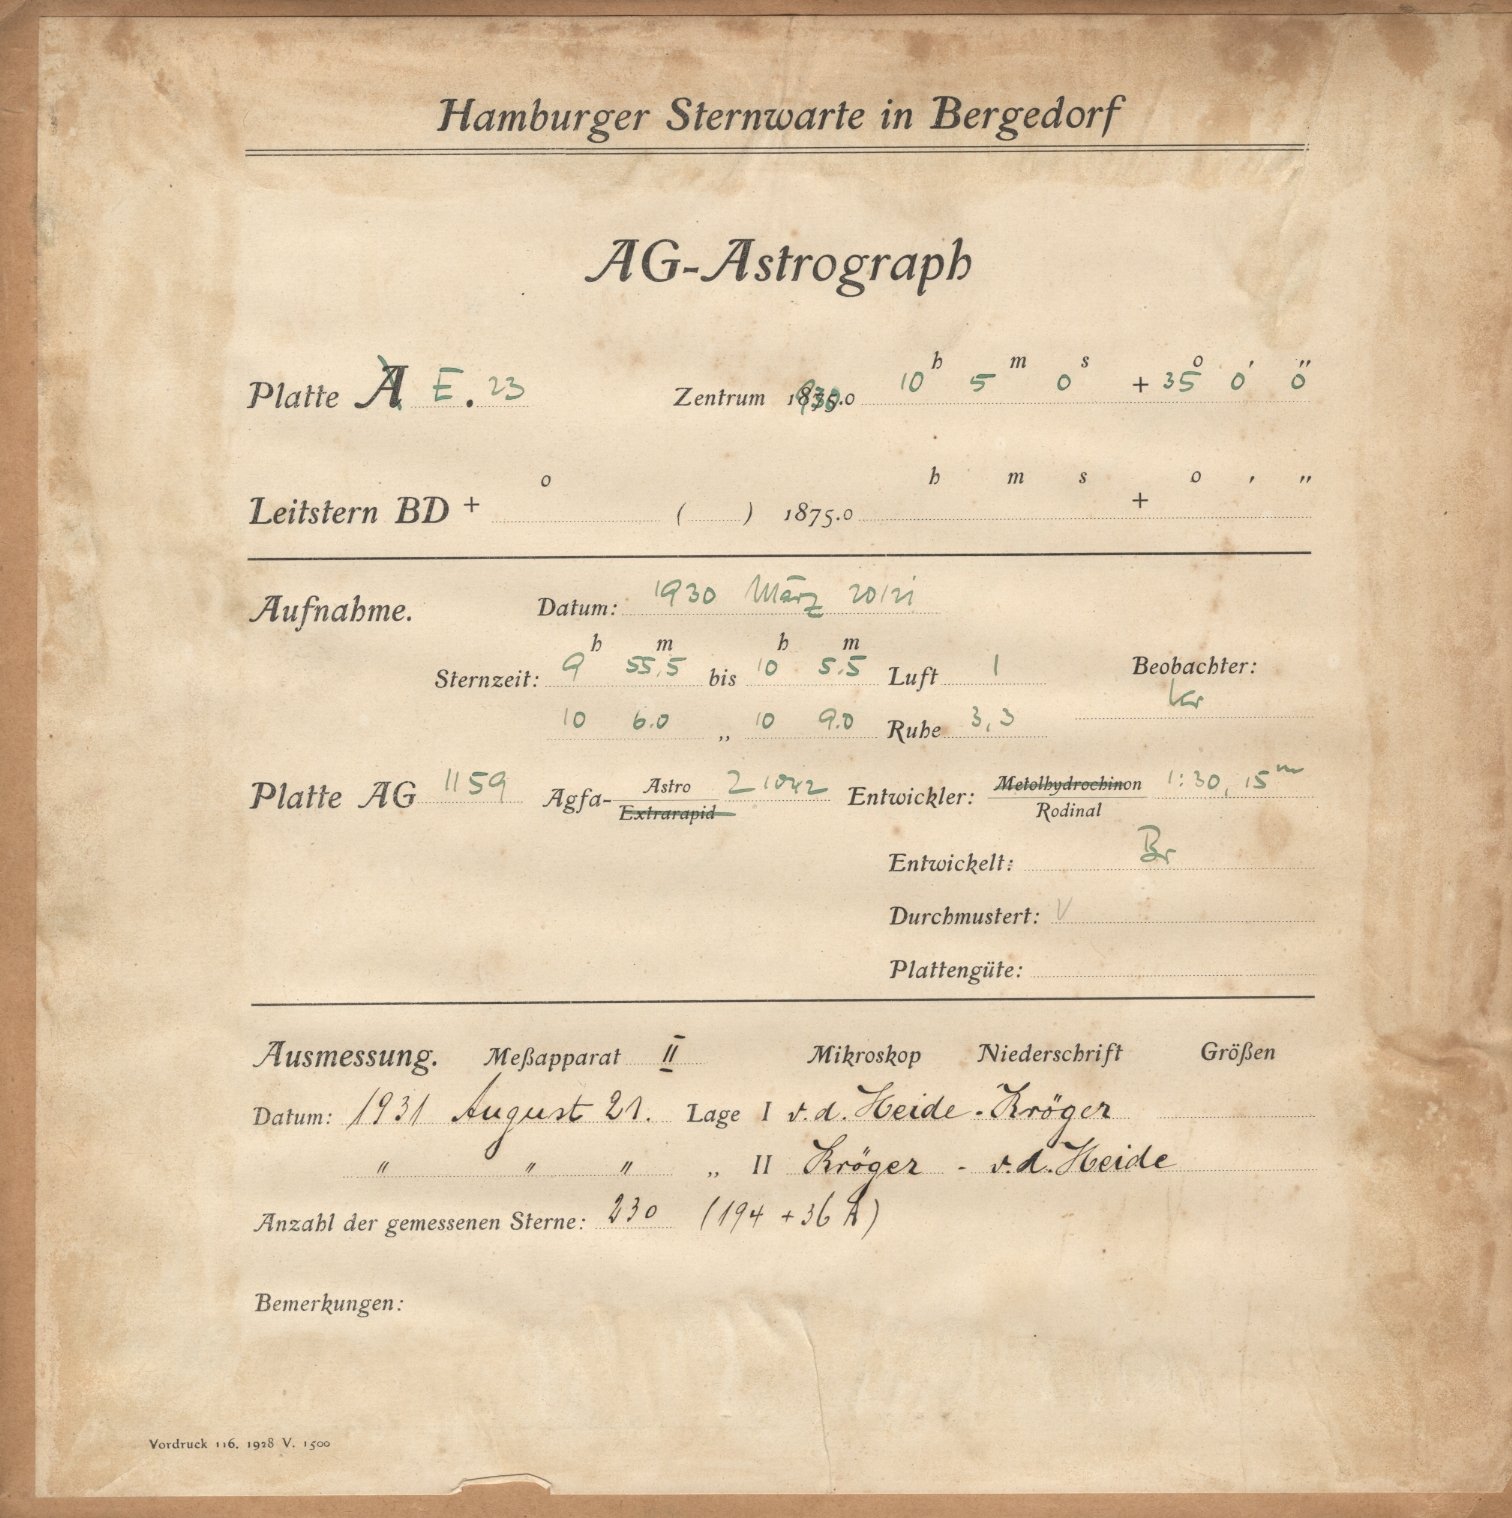 Hamburger Sternwarte in Bergedorf
AG-Astrograph
Platte A E . 23 Zentrum 1930.0 10 h 5 m 0 s + 35 o 0 ' 0 "
Leitstern BD + o ( ) 1875.0 h m s + o ' "
Aufnahme. Datum: 1930 März 20/21
Sternzeit: 9 h 55,5 m bis 10 h 5.5 m Luft 1 Beobachter:
Kr
10 6.0 „ 10 9.0 Ruhe 3,3
Platte AG 1159 Agfa- Astro Extrarapid Z 1042 Entwickler: Metolhydrochinon Rodinal 1:30, 15 m
Entwickelt: Br
Durchmustert: V
Plattengüte:
Ausmessung. Meßapparat II Mikroskop Niederschrift Größen
Datum: 1931 August 21. Lage I v. d. Heide - Kröger
" " " „ II Kröger - v. d. Heide
Anzahl der gemessenen Sterne: 230 (194 + 36 A)
Bemerkungen:
Vordruck 116. 1928 V. 1500